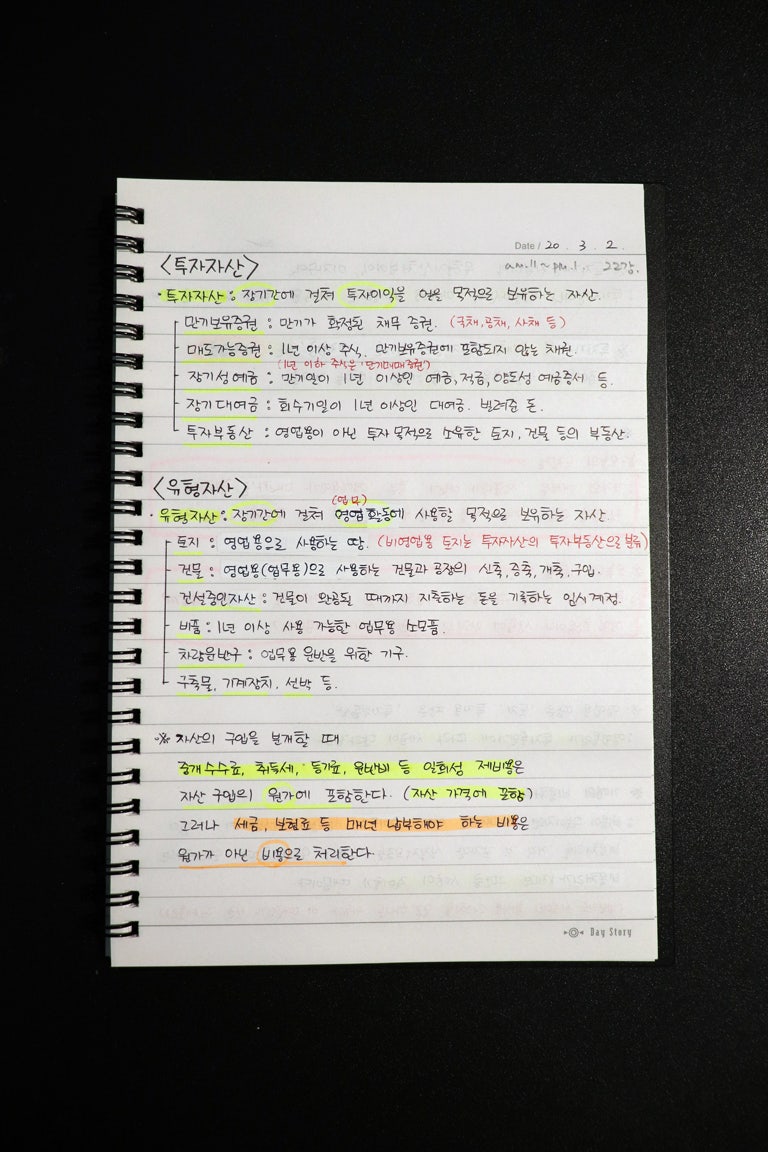 Date / 20 . 3 . 2 .
<투자자산>
am.11 ~ pm.1. 22강.
· 투자자산 : 장기간에 걸쳐 투자이익을 얻을 목적으로 보유하는 자산.
만기보유증권 : 만기가 확정된 채무 증권. (국채,공채, 사채 등)
매도가능증권 : 1년 이상 주식. 만기보유증권에 포함되지 않는 채권.
(1년 이하 주식은 '단기매매증권')
장기성예금 : 만기일이 1년 이상인 예금,적금,양도성 예금증서 등.
장기대여금 : 회수기일이 1년 이상인 대여금. 빌려준 돈.
투자부동산 : 영업용이 아닌 투자 목적으로 소유한 토지, 건물 등의 부동산.
<유형자산>
(업무)
· 유형자산 : 장기간에 걸쳐 영업활동에 사용할 목적으로 보유하는 자산.
토지 : 영업용으로 사용하는 땅. (비영업용 토지는 투자자산의 투자부동산으로 분류)
건물 : 영업용(업무용)으로 사용하는 건물과 공장의 신축,증축,개축,구입.
건설중인자산 : 건물이 완공될 때까지 지출하는 돈을 기록하는 임시계정.
비품 : 1년 이상 사용 가능한 업무용 소모품.
차량운반구 : 업무용 운반을 위한 기구.
구축물, 기계장치, 선박 등.
※ 자산의 구입을 분개할 때
중개수수료, 취득세, 등기료, 운반비 등 일회성 제비용은
자산 구입의 원가에 포함한다. (자산 가격에 포함)
그러나 세금, 보험료 등 매년 납부해야 하는 비용은
원가가 아닌 비용으로 처리한다.
Day Story